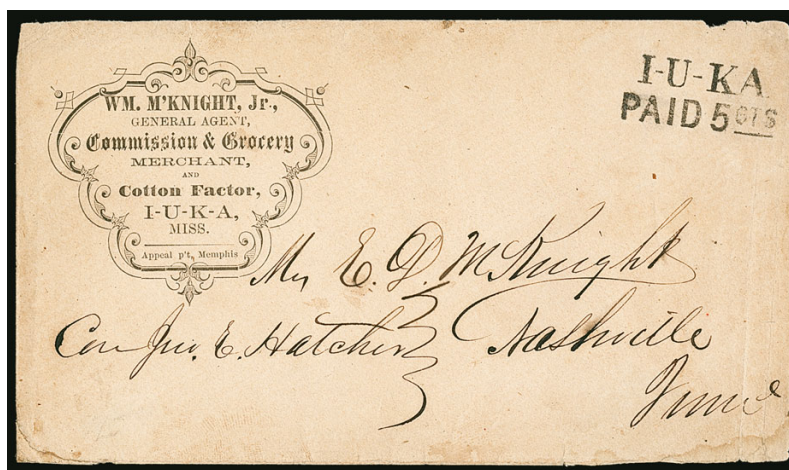 WM. M'KNIGHT, Jr.,
GENERAL AGENT,
Commission & Grocery
MERCHANT,
AND
Cotton Factor,
I-U-K-A,
MISS.
Appeal p't, Memphis
I-U-KA
PAID 5 CTS
E. D. McKnight
Jno. E. Hatcher
Nashville
Tenn